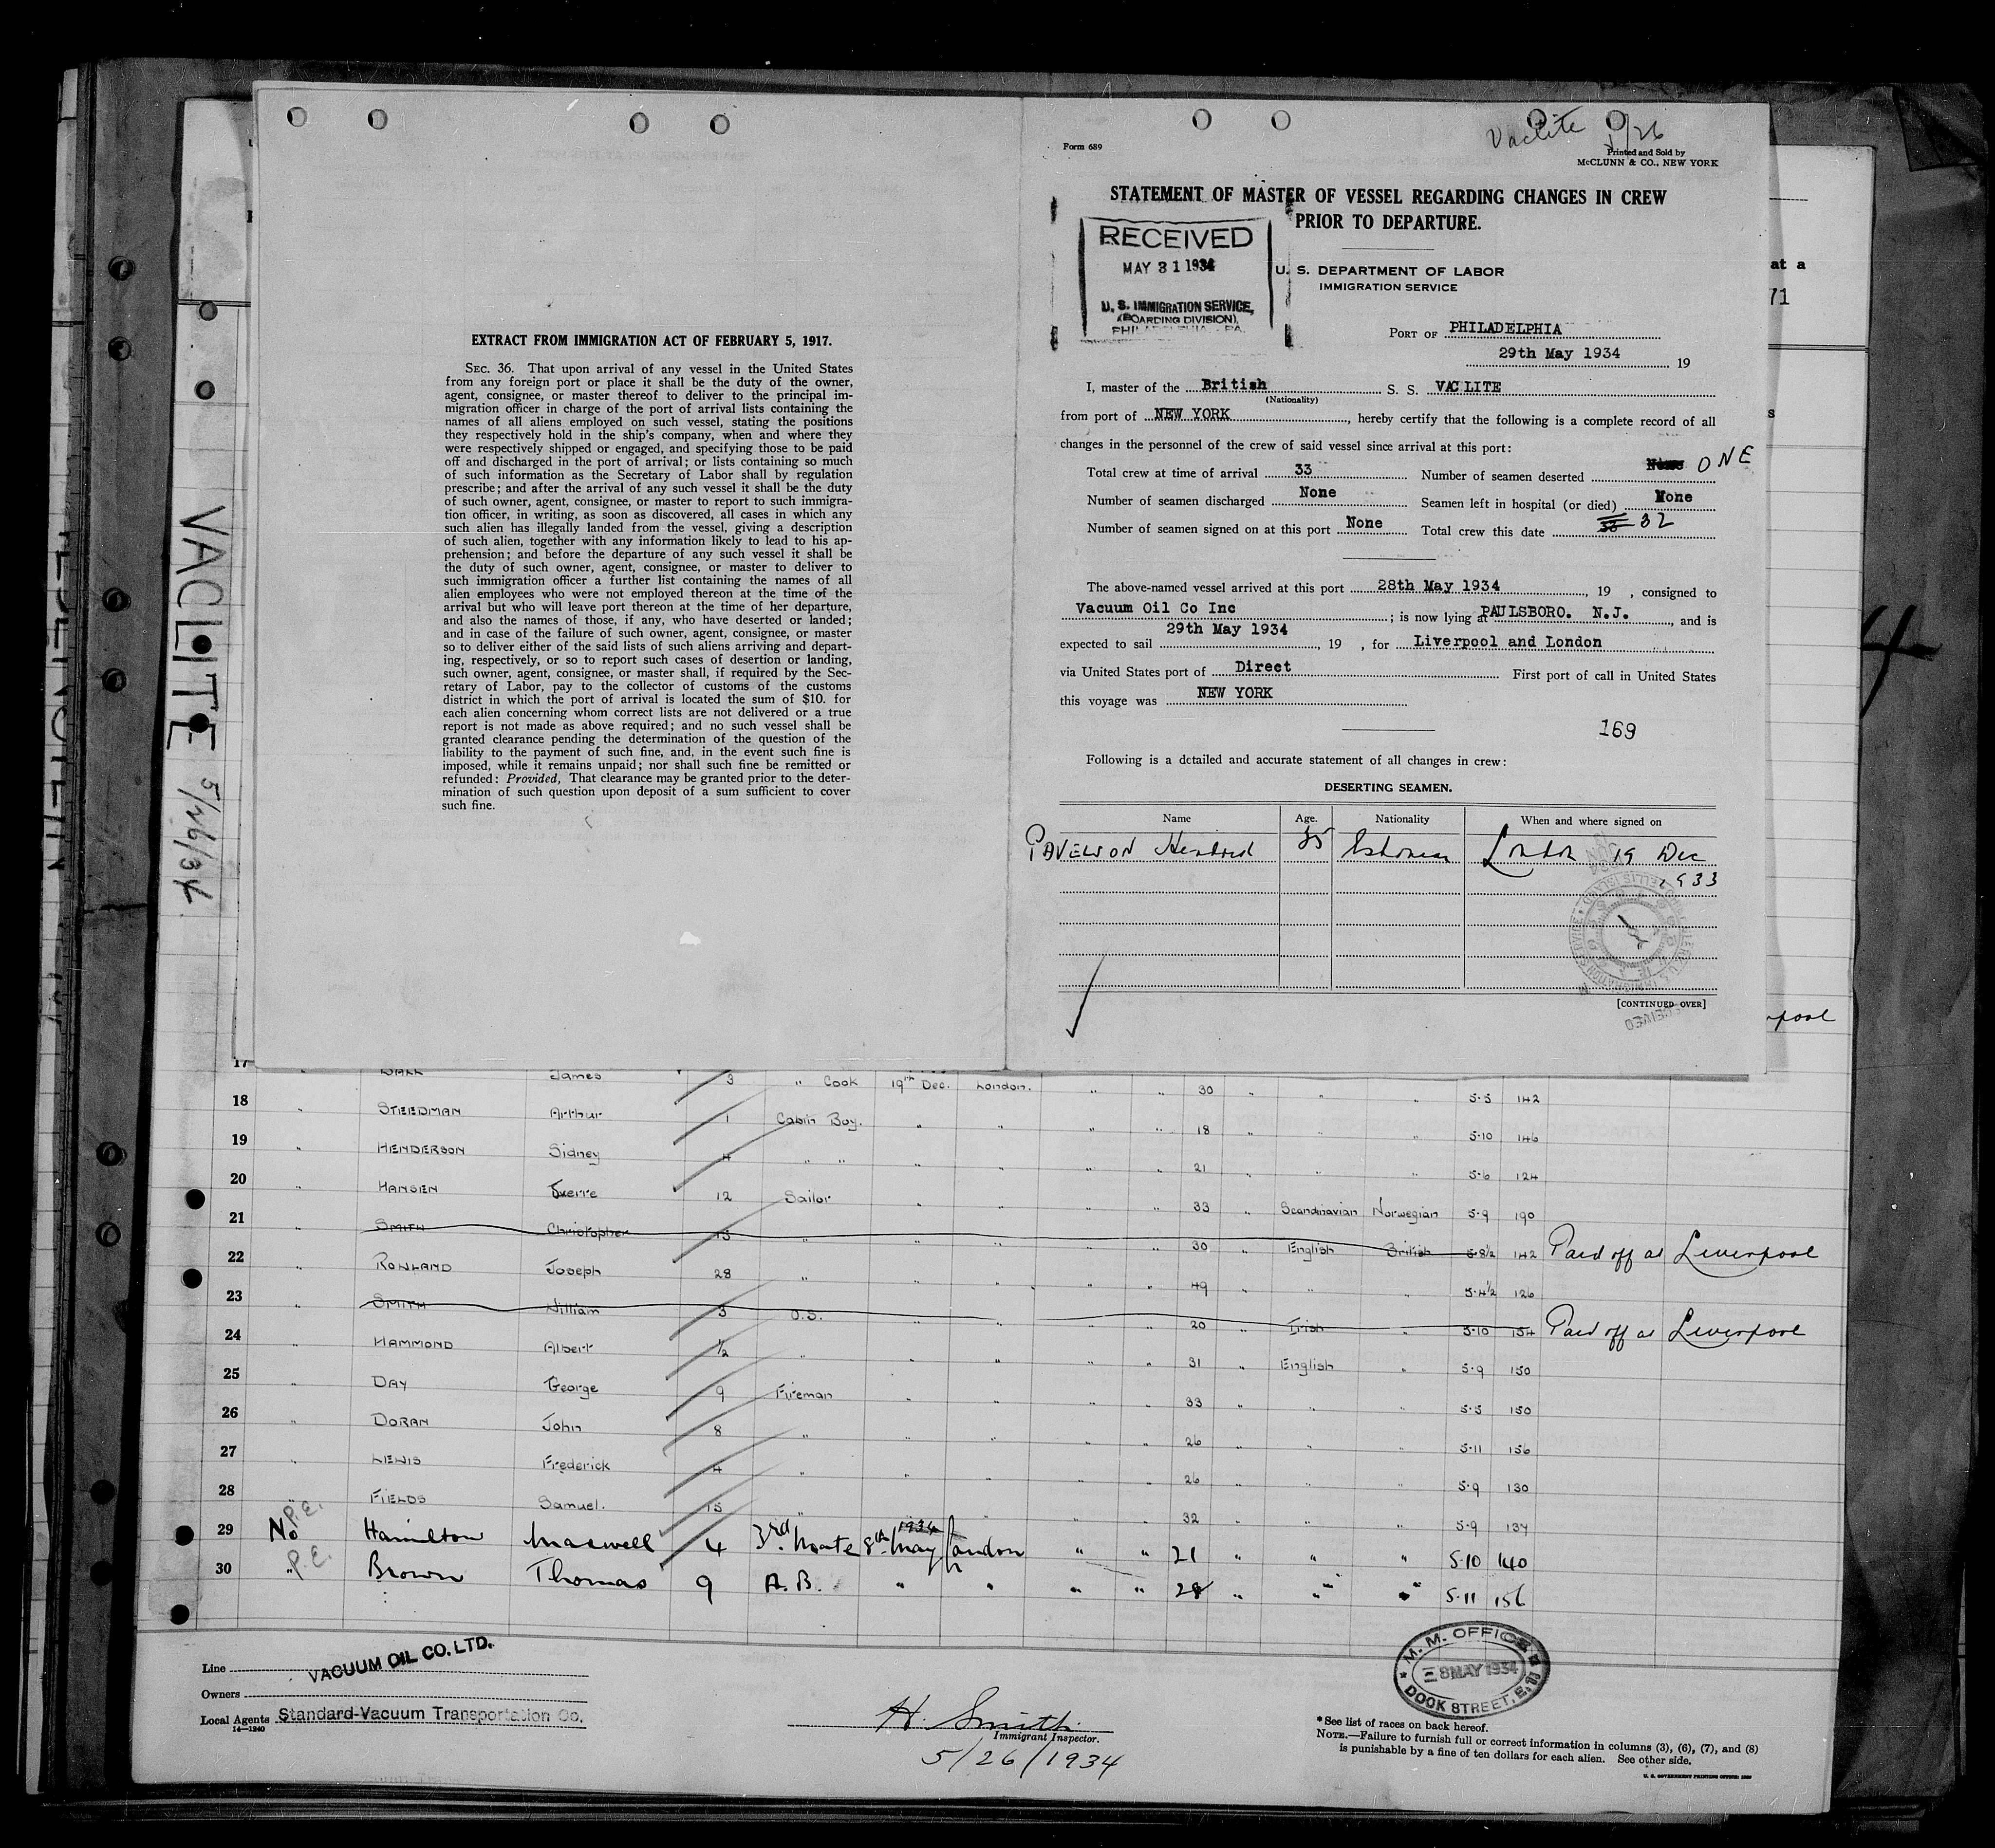 Vaclite 5/26
Form 689
Printed and Sold by
McCLUNN & CO., NEW YORK
STATEMENT OF MASTER OF VESSEL REGARDING CHANGES IN CREW
PRIOR TO DEPARTURE.
RECEIVED
MAY 31 1934
U. S. IMMIGRATION SERVICE,
(BOARDING DIVISION),
PHILADELPHIA, PA.
U. S. DEPARTMENT OF LABOR
IMMIGRATION SERVICE
PORT OF PHILADELPHIA
29th May 1934 19
I, master of the British S. S. VACLITE
(Nationality)
from port of NEW YORK, hereby certify that the following is a complete record of all
changes in the personnel of the crew of said vessel since arrival at this port:
Total crew at time of arrival 33 Number of seamen deserted None ONE
Number of seamen discharged None Seamen left in hospital (or died) None
Number of seamen signed on at this port None Total crew this date 33 32
The above-named vessel arrived at this port 28th May 1934, 19 , consigned to
Vacuum Oil Co Inc; is now lying at PAULSBORO. N.J., and is
expected to sail 29th May 1934, 19 , for Liverpool and London
via United States port of Direct First port of call in United States
this voyage was NEW YORK
169
Following is a detailed and accurate statement of all changes in crew:
DESERTING SEAMEN.
Name Age. Nationality When and where signed on
PAVELSON Hendrik 35 Estonian London 19 Dec
1933
[CONTINUED OVER]
EXTRACT FROM IMMIGRATION ACT OF FEBRUARY 5, 1917.
SEC. 36. That upon arrival of any vessel in the United States
from any foreign port or place it shall be the duty of the owner,
agent, consignee, or master thereof to deliver to the principal im-
migration officer in charge of the port of arrival lists containing the
names of all aliens employed on such vessel, stating the positions
they respectively hold in the ship's company, when and where they
were respectively shipped or engaged, and specifying those to be paid
off and discharged in the port of arrival; or lists containing so much
of such information as the Secretary of Labor shall by regulation
prescribe; and after the arrival of any such vessel it shall be the duty
of such owner, agent, consignee, or master to report to such immigra-
tion officer, in writing, as soon as discovered, all cases in which any
such alien has illegally landed from the vessel, giving a description
of such alien, together with any information likely to lead to his ap-
prehension; and before the departure of any such vessel it shall be
the duty of such owner, agent, consignee, or master to deliver to
such immigration officer a further list containing the names of all
alien employees who were not employed thereon at the time of the
arrival but who will leave port thereon at the time of her departure,
and also the names of those, if any, who have deserted or landed;
and in case of the failure of such owner, agent, consignee, or master
so to deliver either of the said lists of such aliens arriving and depart-
ing, respectively, or so to report such cases of desertion or landing,
such owner, agent, consignee, or master shall, if required by the Sec-
retary of Labor, pay to the collector of customs of the customs
district in which the port of arrival is located the sum of $10. for
each alien concerning whom correct lists are not delivered or a true
report is not made as above required; and no such vessel shall be
granted clearance pending the determination of the question of the
liability to the payment of such fine, and, in the event such fine is
imposed, while it remains unpaid; nor shall such fine be remitted or
refunded: Provided, That clearance may be granted prior to the deter-
mination of such question upon deposit of a sum sufficient to cover
such fine.
VACLITE 5/26/34
at a
71
s
rpool
17 " James 3 " Cook 19th Dec. London. " " 30 " " " 5-5 142
18 " STEEDMAN Arthur 1 Cabin Boy. " " " " 18 " " 5-10 146
19 " HENDERSON Sidney 4 " " " " " " 21 " " " 5-6 124
20 " HANSEN Sverre 12 Sailor " " " " 33 " Scandinavian Norwegian 5-9 190
21 " SMITH Christopher 13 " " " " " 30 " English British 5-8½ 142 Paid off at Liverpool
22 " ROWLAND Joseph 28 " " " " " 49 " " " 5-4½ 126
23 " SMITH William 3 O.S. " " " " 20 " Irish " 5-10 154 Paid off at Liverpool
24 " HAMMOND Albert ½ " " " " " 31 " English " 5-9 150
25 " DAY George 9 Fireman " " " " 33 " " " 5-5 150
26 " DORAN John 8 " " " " " 26 " " " 5-11 156
27 " LEWIS Frederick 4 " " " " " 26 " " " 5-9 130
28 " FIELDS Samuel. 15 " " " " " 32 " " " 5-9 137
29 No P.E. Hamilton Maxwell 4 3rd. Mate 8th May 1934 London " " 21 " " " 5-10 140
30 " P.E. Brown Thomas 9 A.B. " " " " 28 " " " 5-11 156
Line
VACUUM OIL CO. LTD.
Owners
Local Agents Standard-Vacuum Transportation Co.
14—1240
H. Smith
Immigrant Inspector.
5/26/1934
M. M. OFFICE
8 MAY 1934
DOCK STREET, E.
*See list of races on back hereof.
NOTE.—Failure to furnish full or correct information in columns (3), (6), (7), and (8)
is punishable by a fine of ten dollars for each alien. See other side.